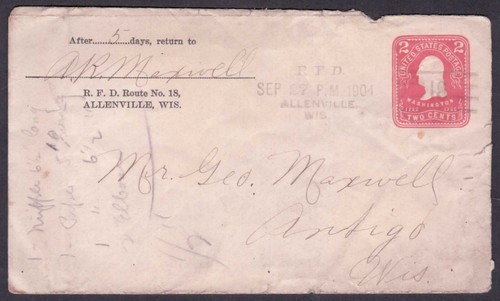 After......5......days, return to
A.R. Maxwell
R. F. D. Route No. 18,
ALLENVILLE, WIS.
R. F. D.
SEP 27 P.M. 1904
ALLENVILLE,
WIS.
2 UNITED STATES POSTAGE 2
18
WASHINGTON
TWO CENTS
Mr. Geo. Maxwell
Antigo
Wis.
1 - 6½ long
1 -
1 " 6½ "